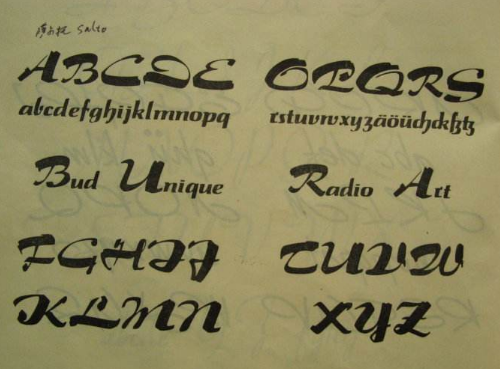 Salto
ABCDE
abcdefghijklmnopq
Bud Unique
FGHIJ
KLMN
OPQRS
rstuvwxyzäöüchckßtz
Radio Art
TUVW
XYZ